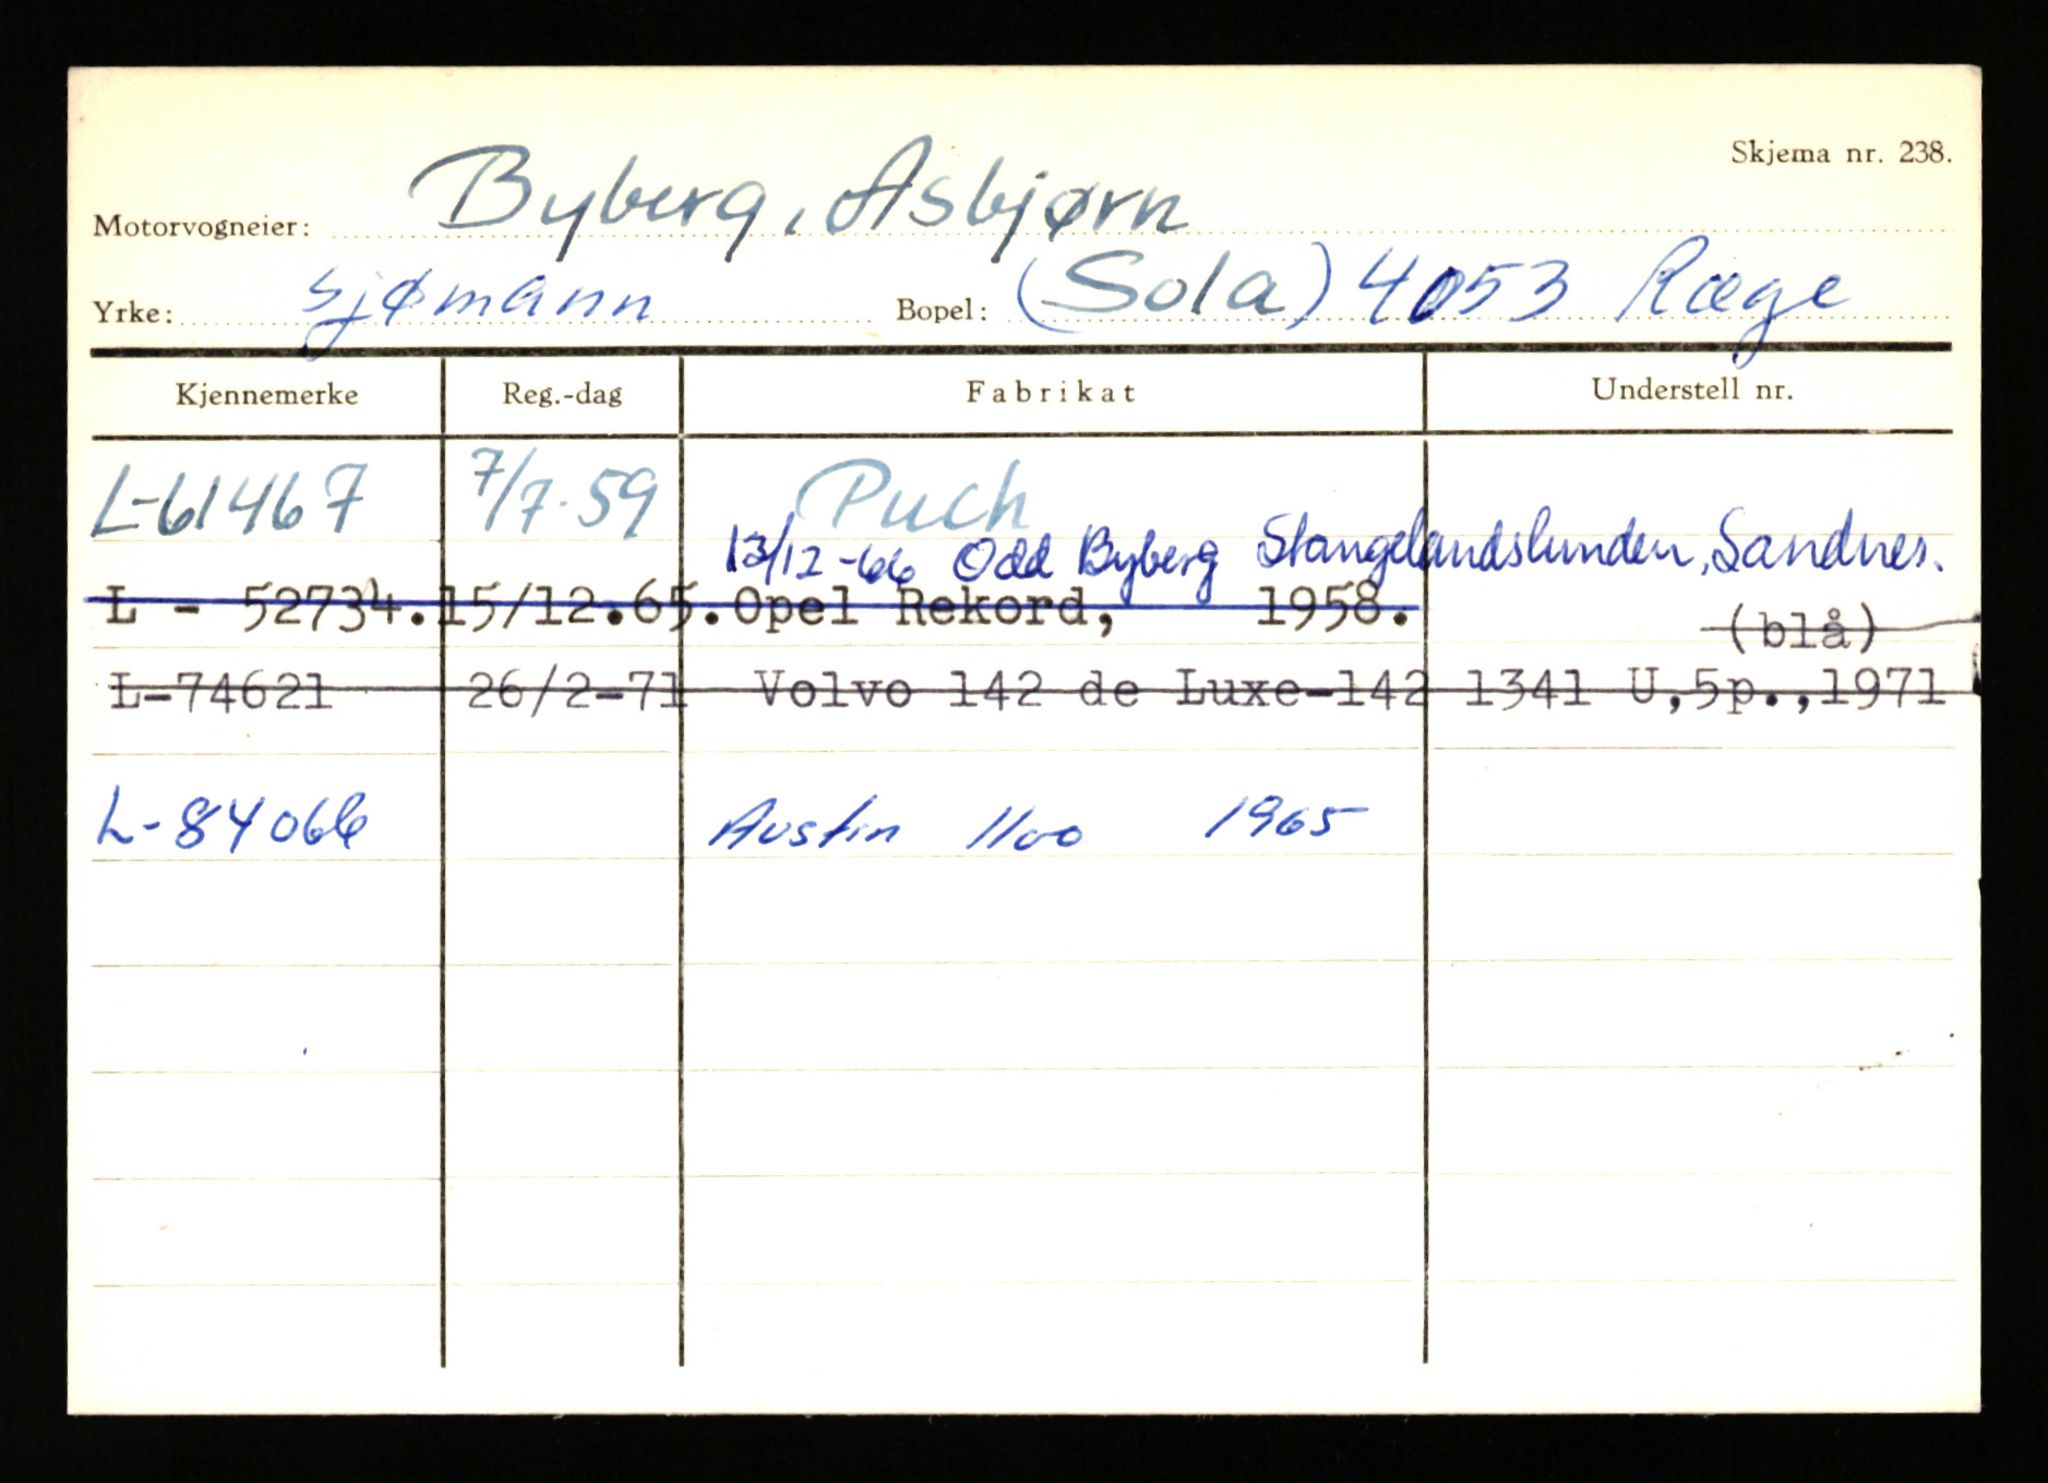 Skjema nr. 238.
Motorvogneier: Byberg, Asbjørn
Yrke: sjømann Bopel: (Sola) 4053 Ræge
Kjennemerke Reg.-dag Fabrikat Understell nr.
L-61467 7/7-59 Puch
13/12-66 Odd Byberg Stangelandslunden, Sandnes.
L - 52734. 15/12.65. Opel Rekord, 1958.
(blå)
L-74621 26/2-71 Volvo 142 de Luxe-142 1341 U,5p.,1971
L-84066 Austin 1100 1965